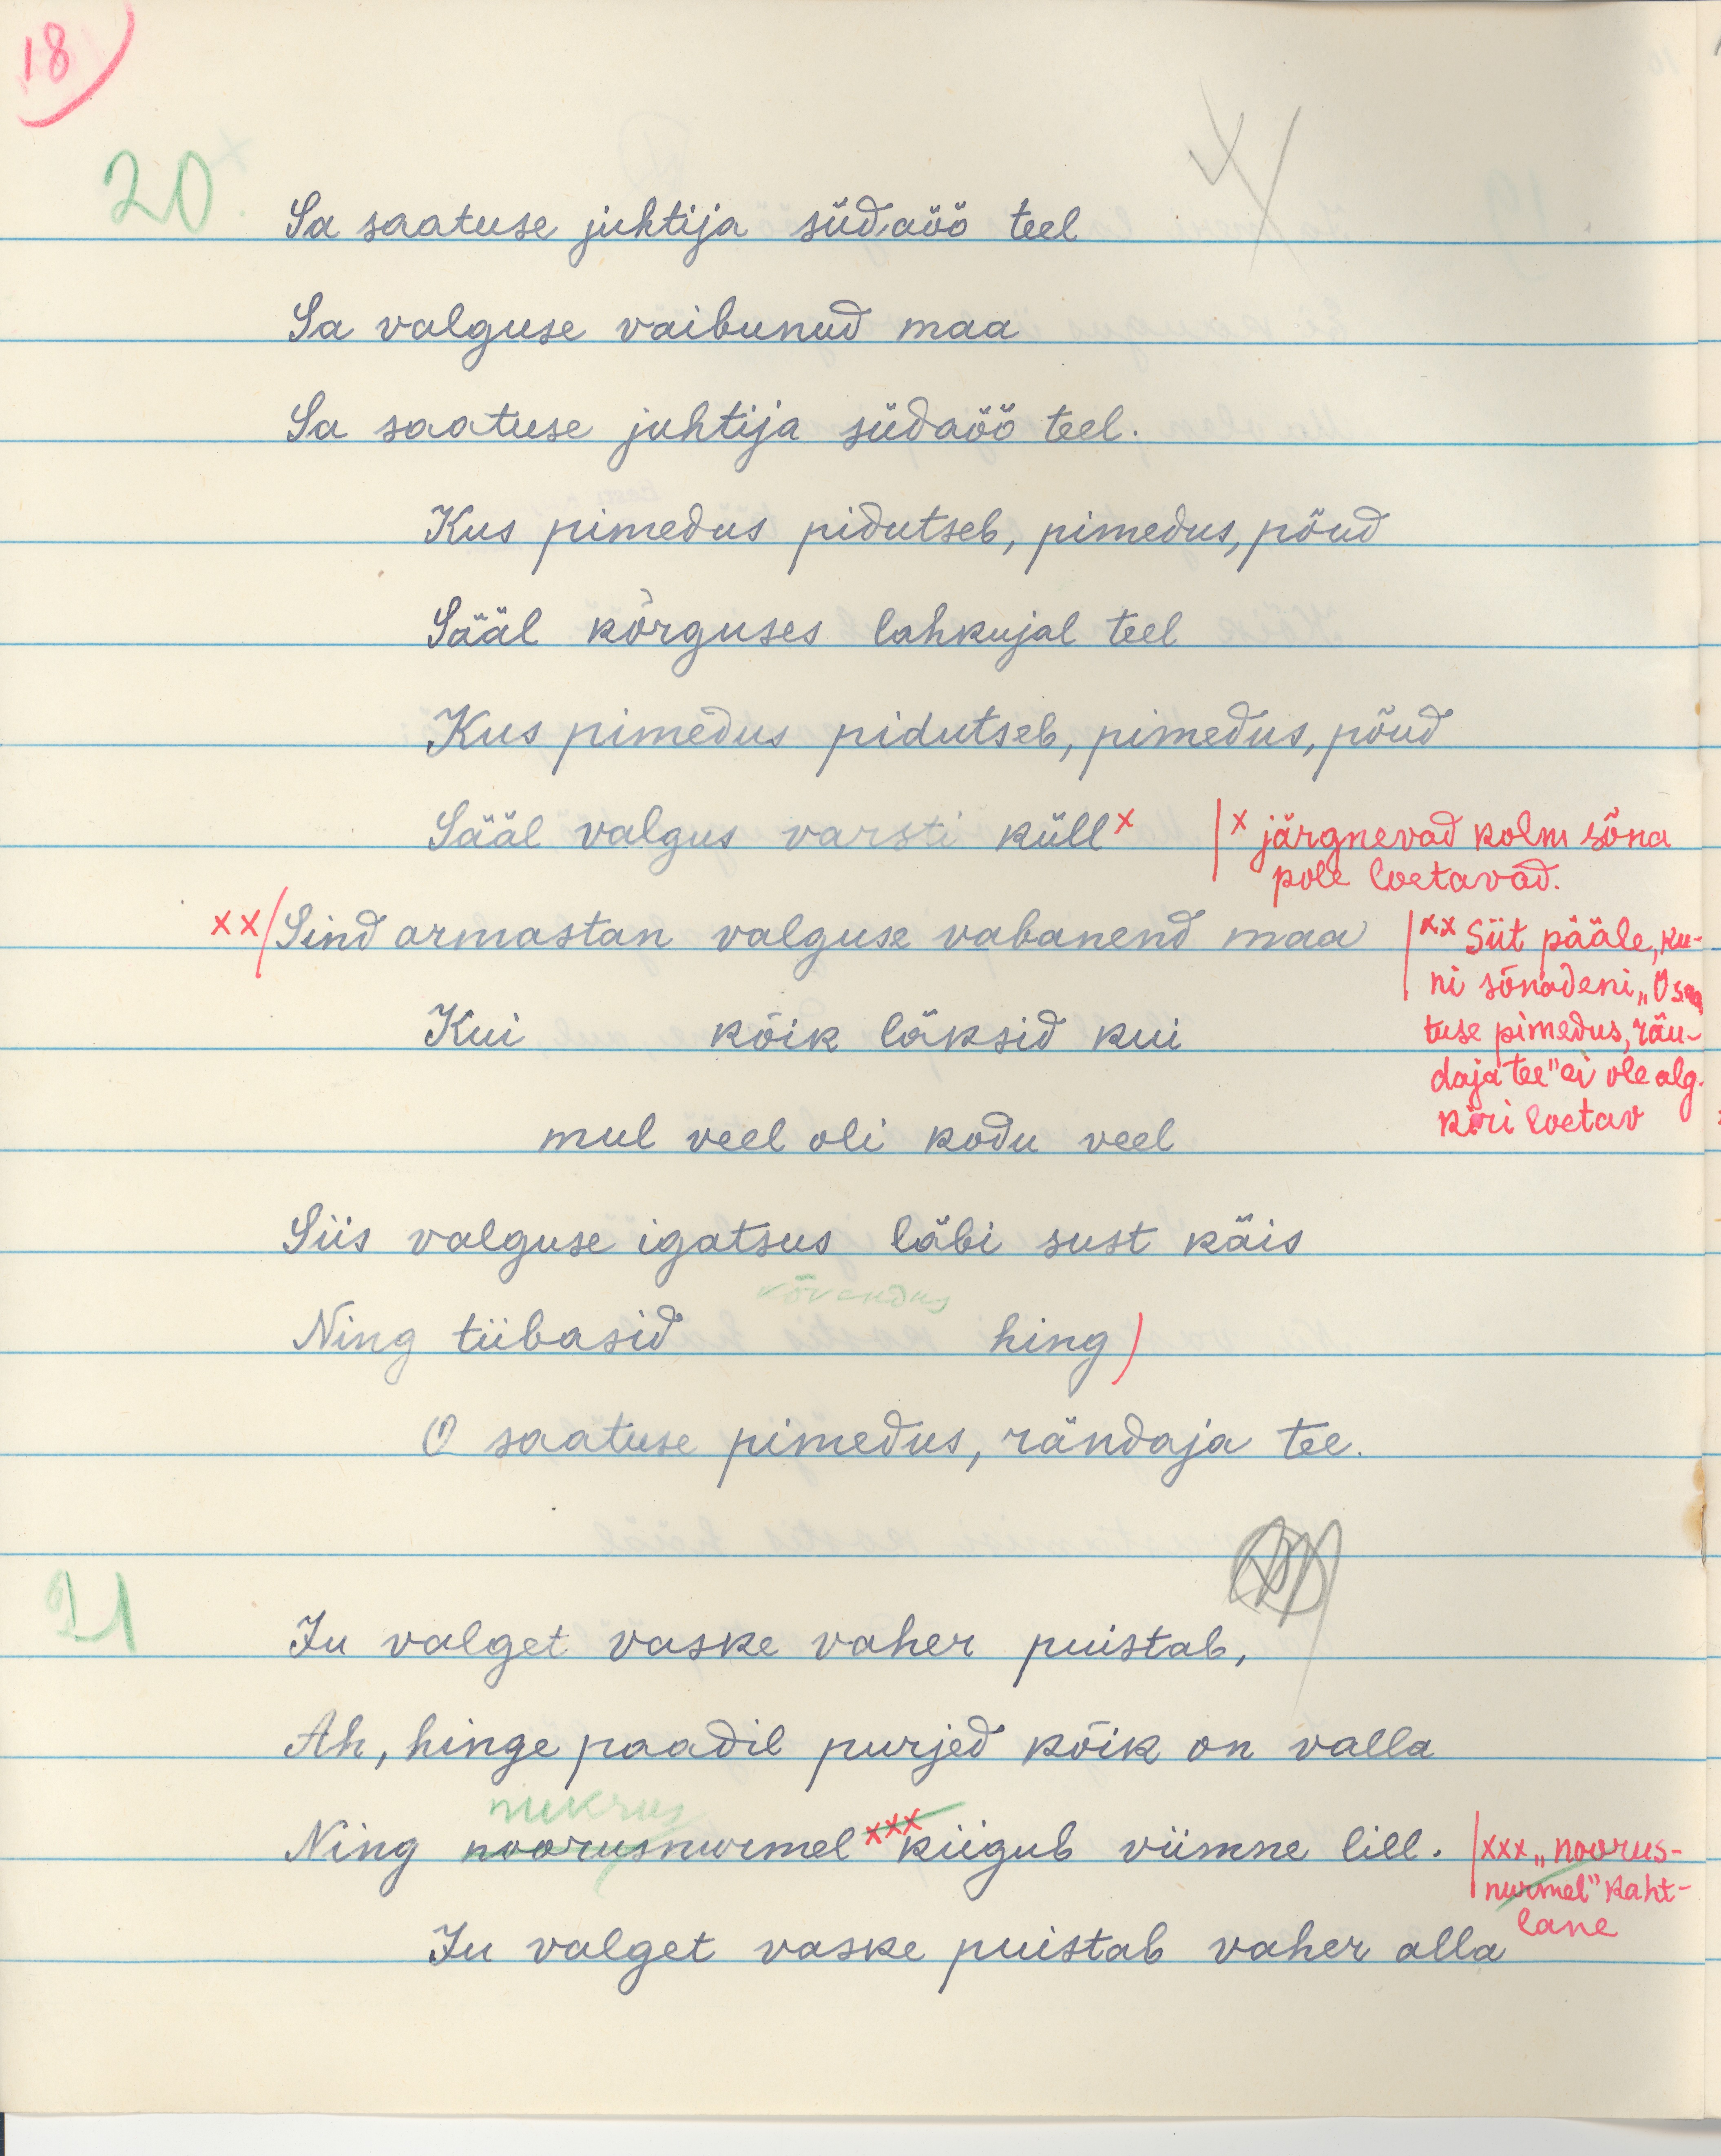 18
20.
Sa saatuse juhtija südaöö teel
Sa valguse vaibunud maa
Sa saatuse juhtija südaöö teel.
Kus pimedus pidutseb, pimedus, põud
Sääl kõrguses lahkujal teel
Kus pimedus pidutseb, pimedus, põud
Sääl valgus varsti küll x
x järgnevad kolm sõna
pole loetavad.
xx/ Sind armastan valguse vabanend maa
xx Siit pääle, ku-
ni sõnadeni „O saa
tuse pimedus, rän-
daja tee" ei ole alg-
kiri loetav
Kui kõik läksid kui
mul veel oli kodu veel
Siis valguse igatsus läbi sust käis
Ning tiibasid hing)
O saatuse pimedus, rändaja tee.
21
Ju valget vaske vaher puistab,
Ah, hinge paadil purjed kõik on valla
nukrus
Ning noorusnurmel xxx kiigub viimne lill.
xxx „noorus-
nurmel" kaht-
lane
Ju valget vaske puistab vaher alla